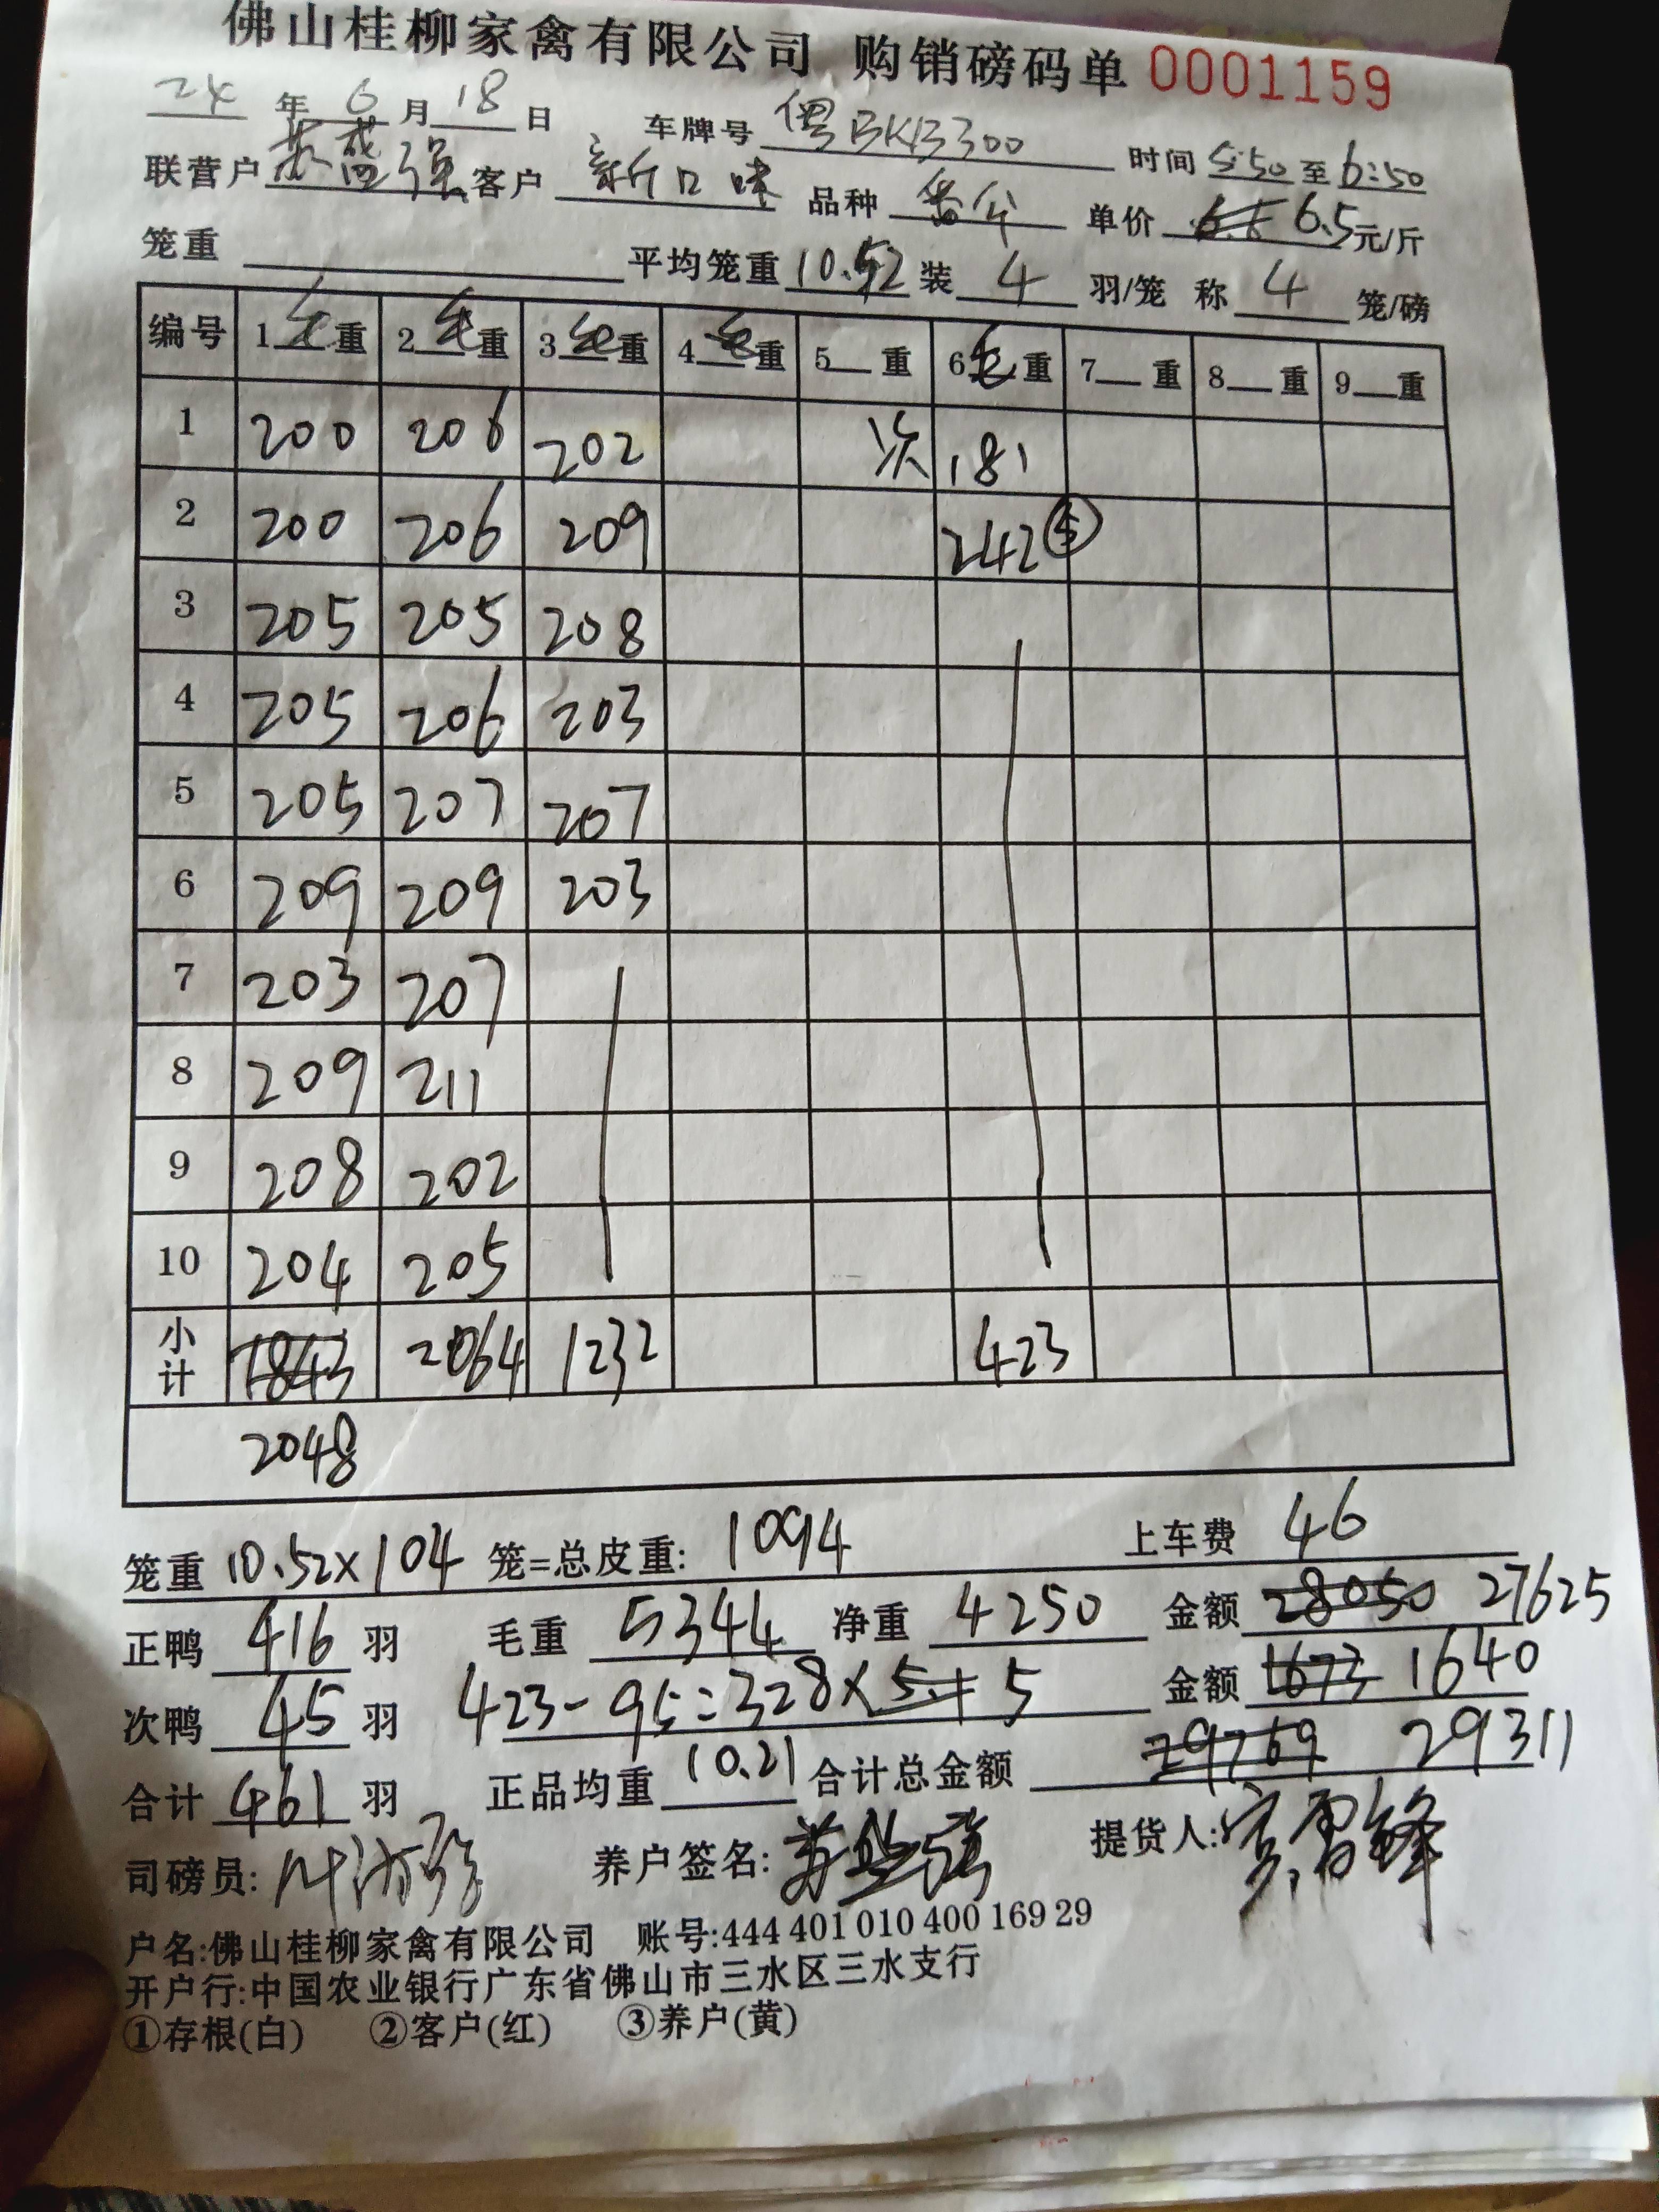 佛山桂柳家禽有限公司 购销磅码单 0001159
24 年 6 月 18 日 车牌号 粤BKB300 时间 5:50 至 6:50
联营户 苏盛强 客户 新口味 品种 番公 单价 6.5 元/斤
笼重 平均笼重 10.52 装 4 羽/笼 称 4 笼/磅
编号 1毛重 2毛重 3毛重 4毛重 5 重 6毛重 7 重 8 重 9 重
1 200 206 202 次 181
2 200 206 209 242 ⑤
3 205 205 208
4 205 206 203
5 205 207 207
6 209 209 203
7 203 207
8 209 211
9 208 202
10 204 205
小计 1843 2064 1232 423
2048
笼重 10.52×104 笼=总皮重: 1094 上车费 46
正鸭 416 羽 毛重 5344 净重 4250 金额 28050 27625
次鸭 45 羽 423-95=328× 5 金额 1673 1640
合计 461 羽 正品均重 10.21 合计总金额 29769 29311
司磅员: 养户签名: 苏盛强 提货人:
户名:佛山桂柳家禽有限公司 账号:444 401 010 400 169 29
开户行:中国农业银行广东省佛山市三水区三水支行
①存根(白) ②客户(红) ③养户(黄)